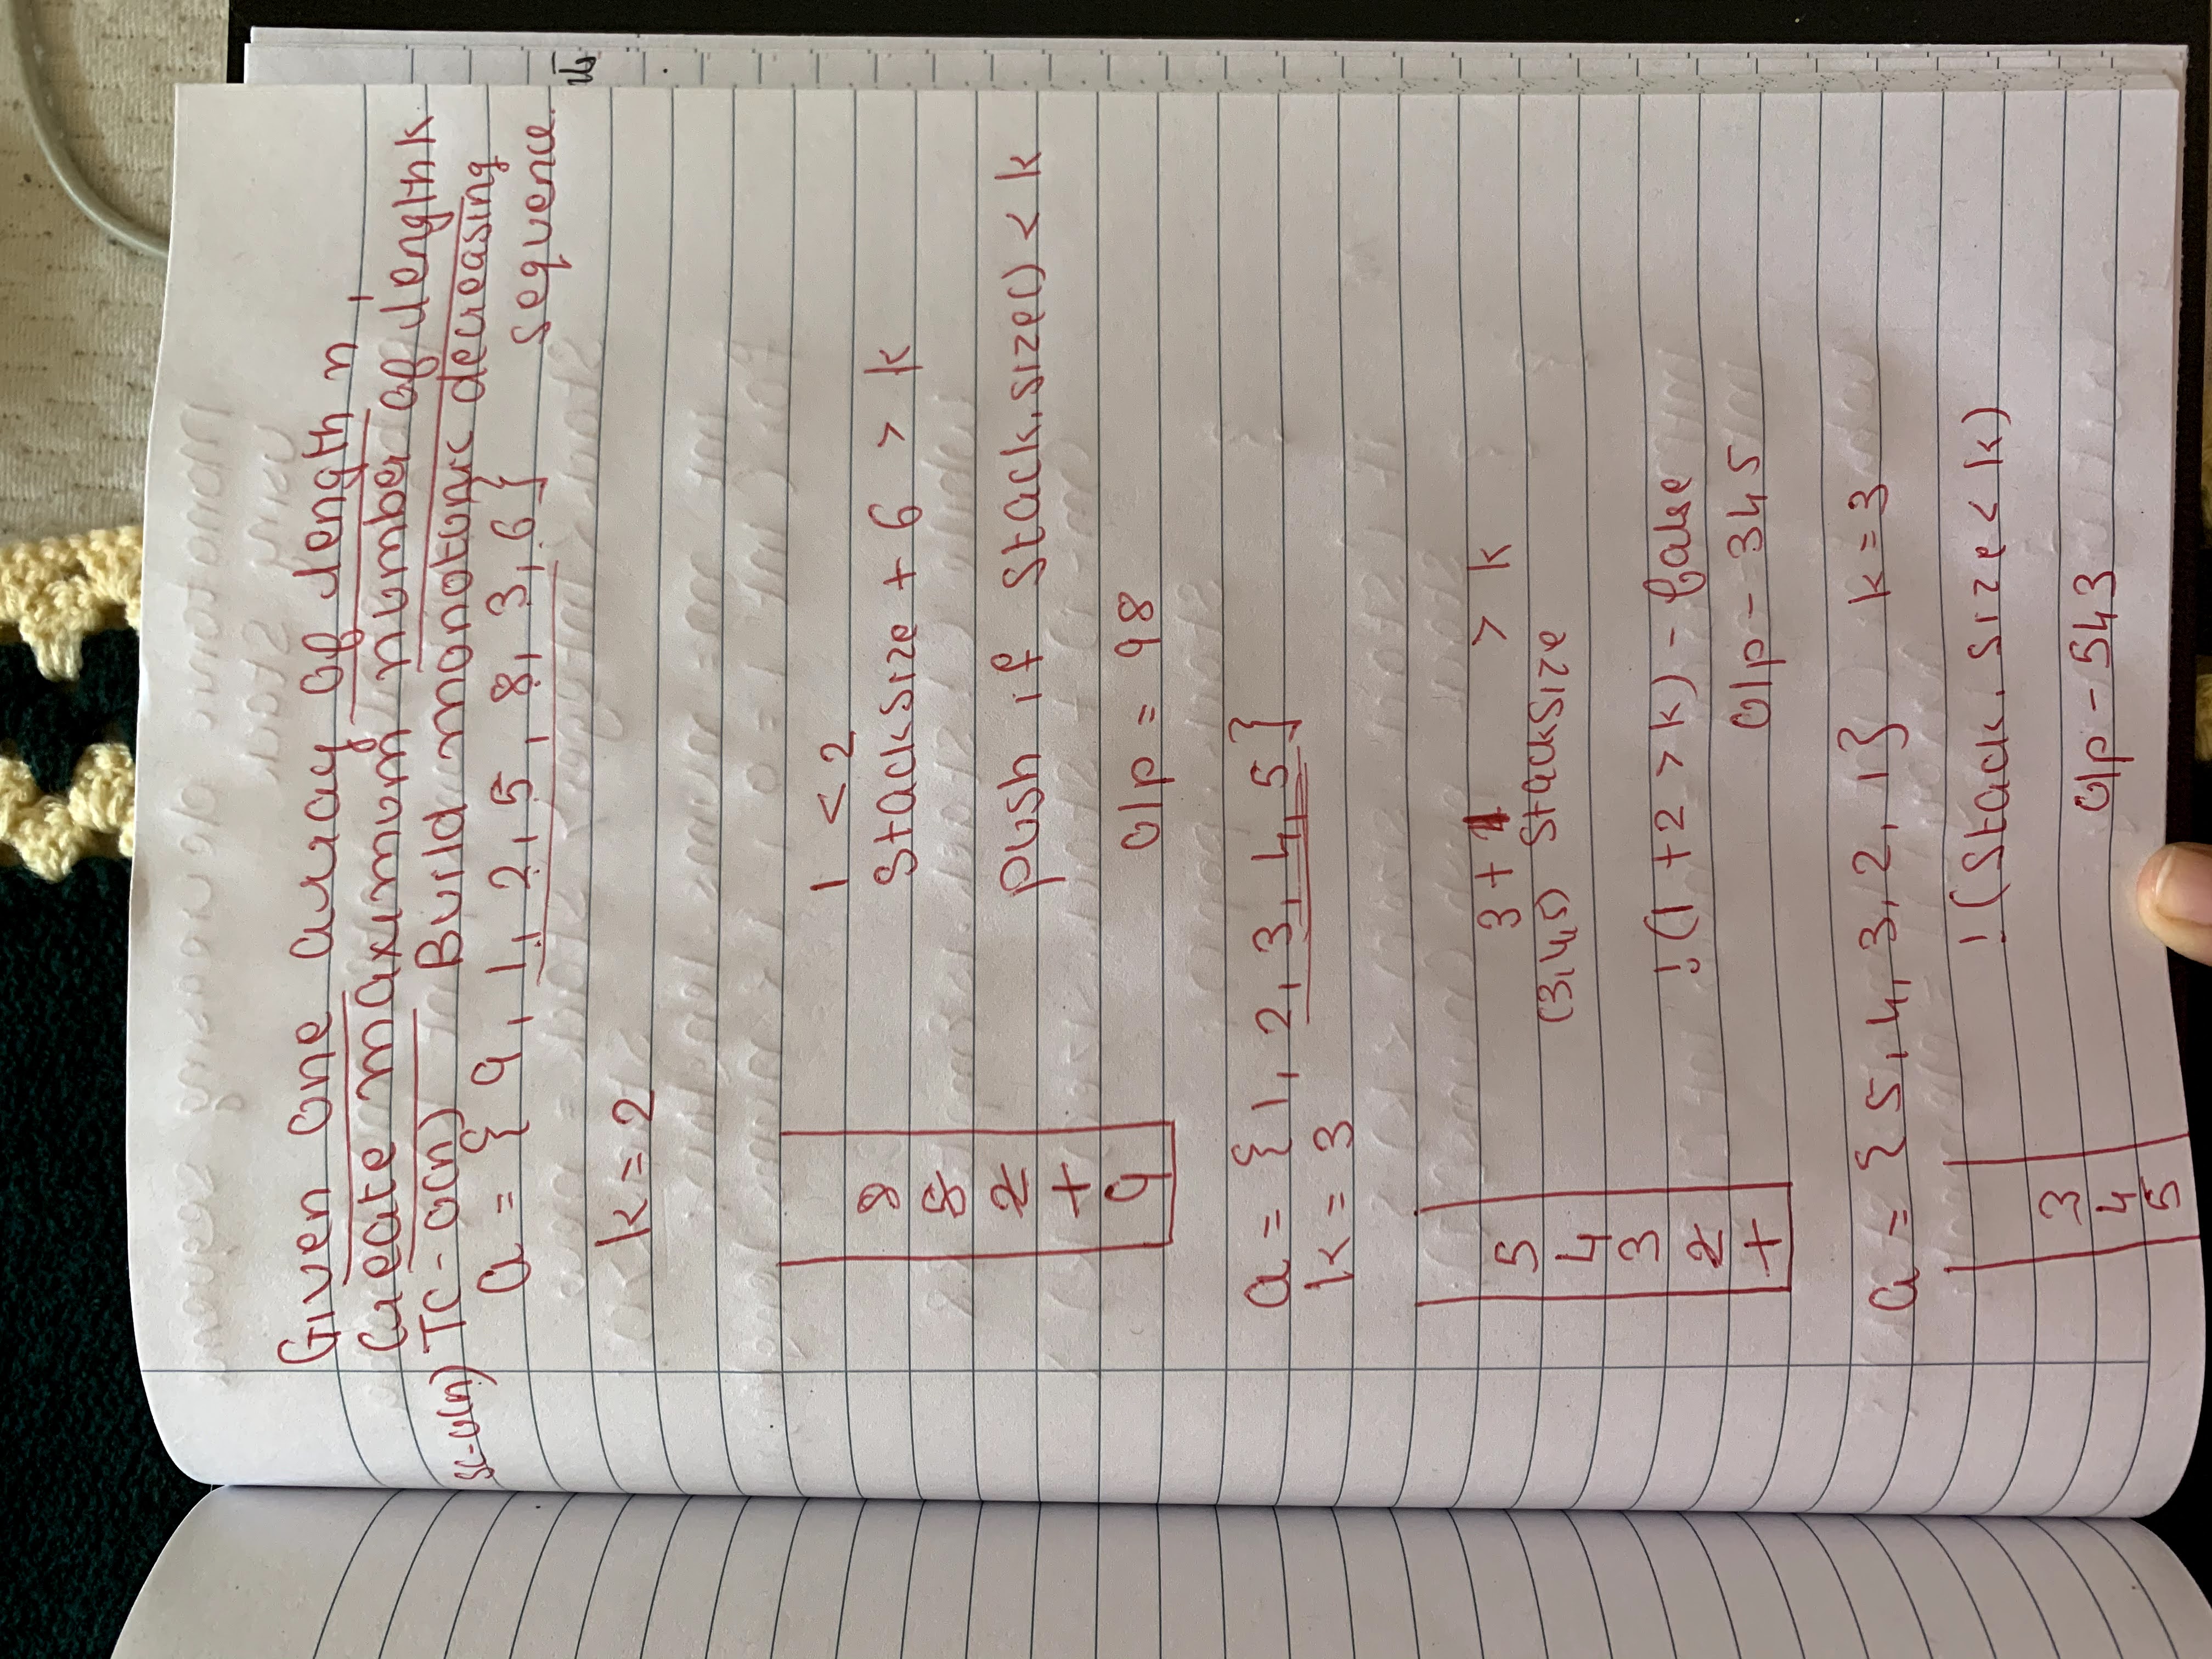 Given one array of length n,
Create maximum number of length k
SC-O(n) TC-O(n) Build monotonic decreasing
a = { 9, 1, 2, 5, 8, 3, 6} sequence.
k = 2
1 < 2
8
stacksize + 6 > k
2
push if stack.size() < k
1
9
O/p = 98
a = {1, 2, 3, 4, 5}
k = 3
3 + 1 > k
5
(3,4,5) stacksize
4
3
!(1 + 2 > k) - false
2
O/p - 345
1
a = {5, 4, 3, 2, 1} k = 3
!(stack. size < k)
3
O/p - 543
4
5